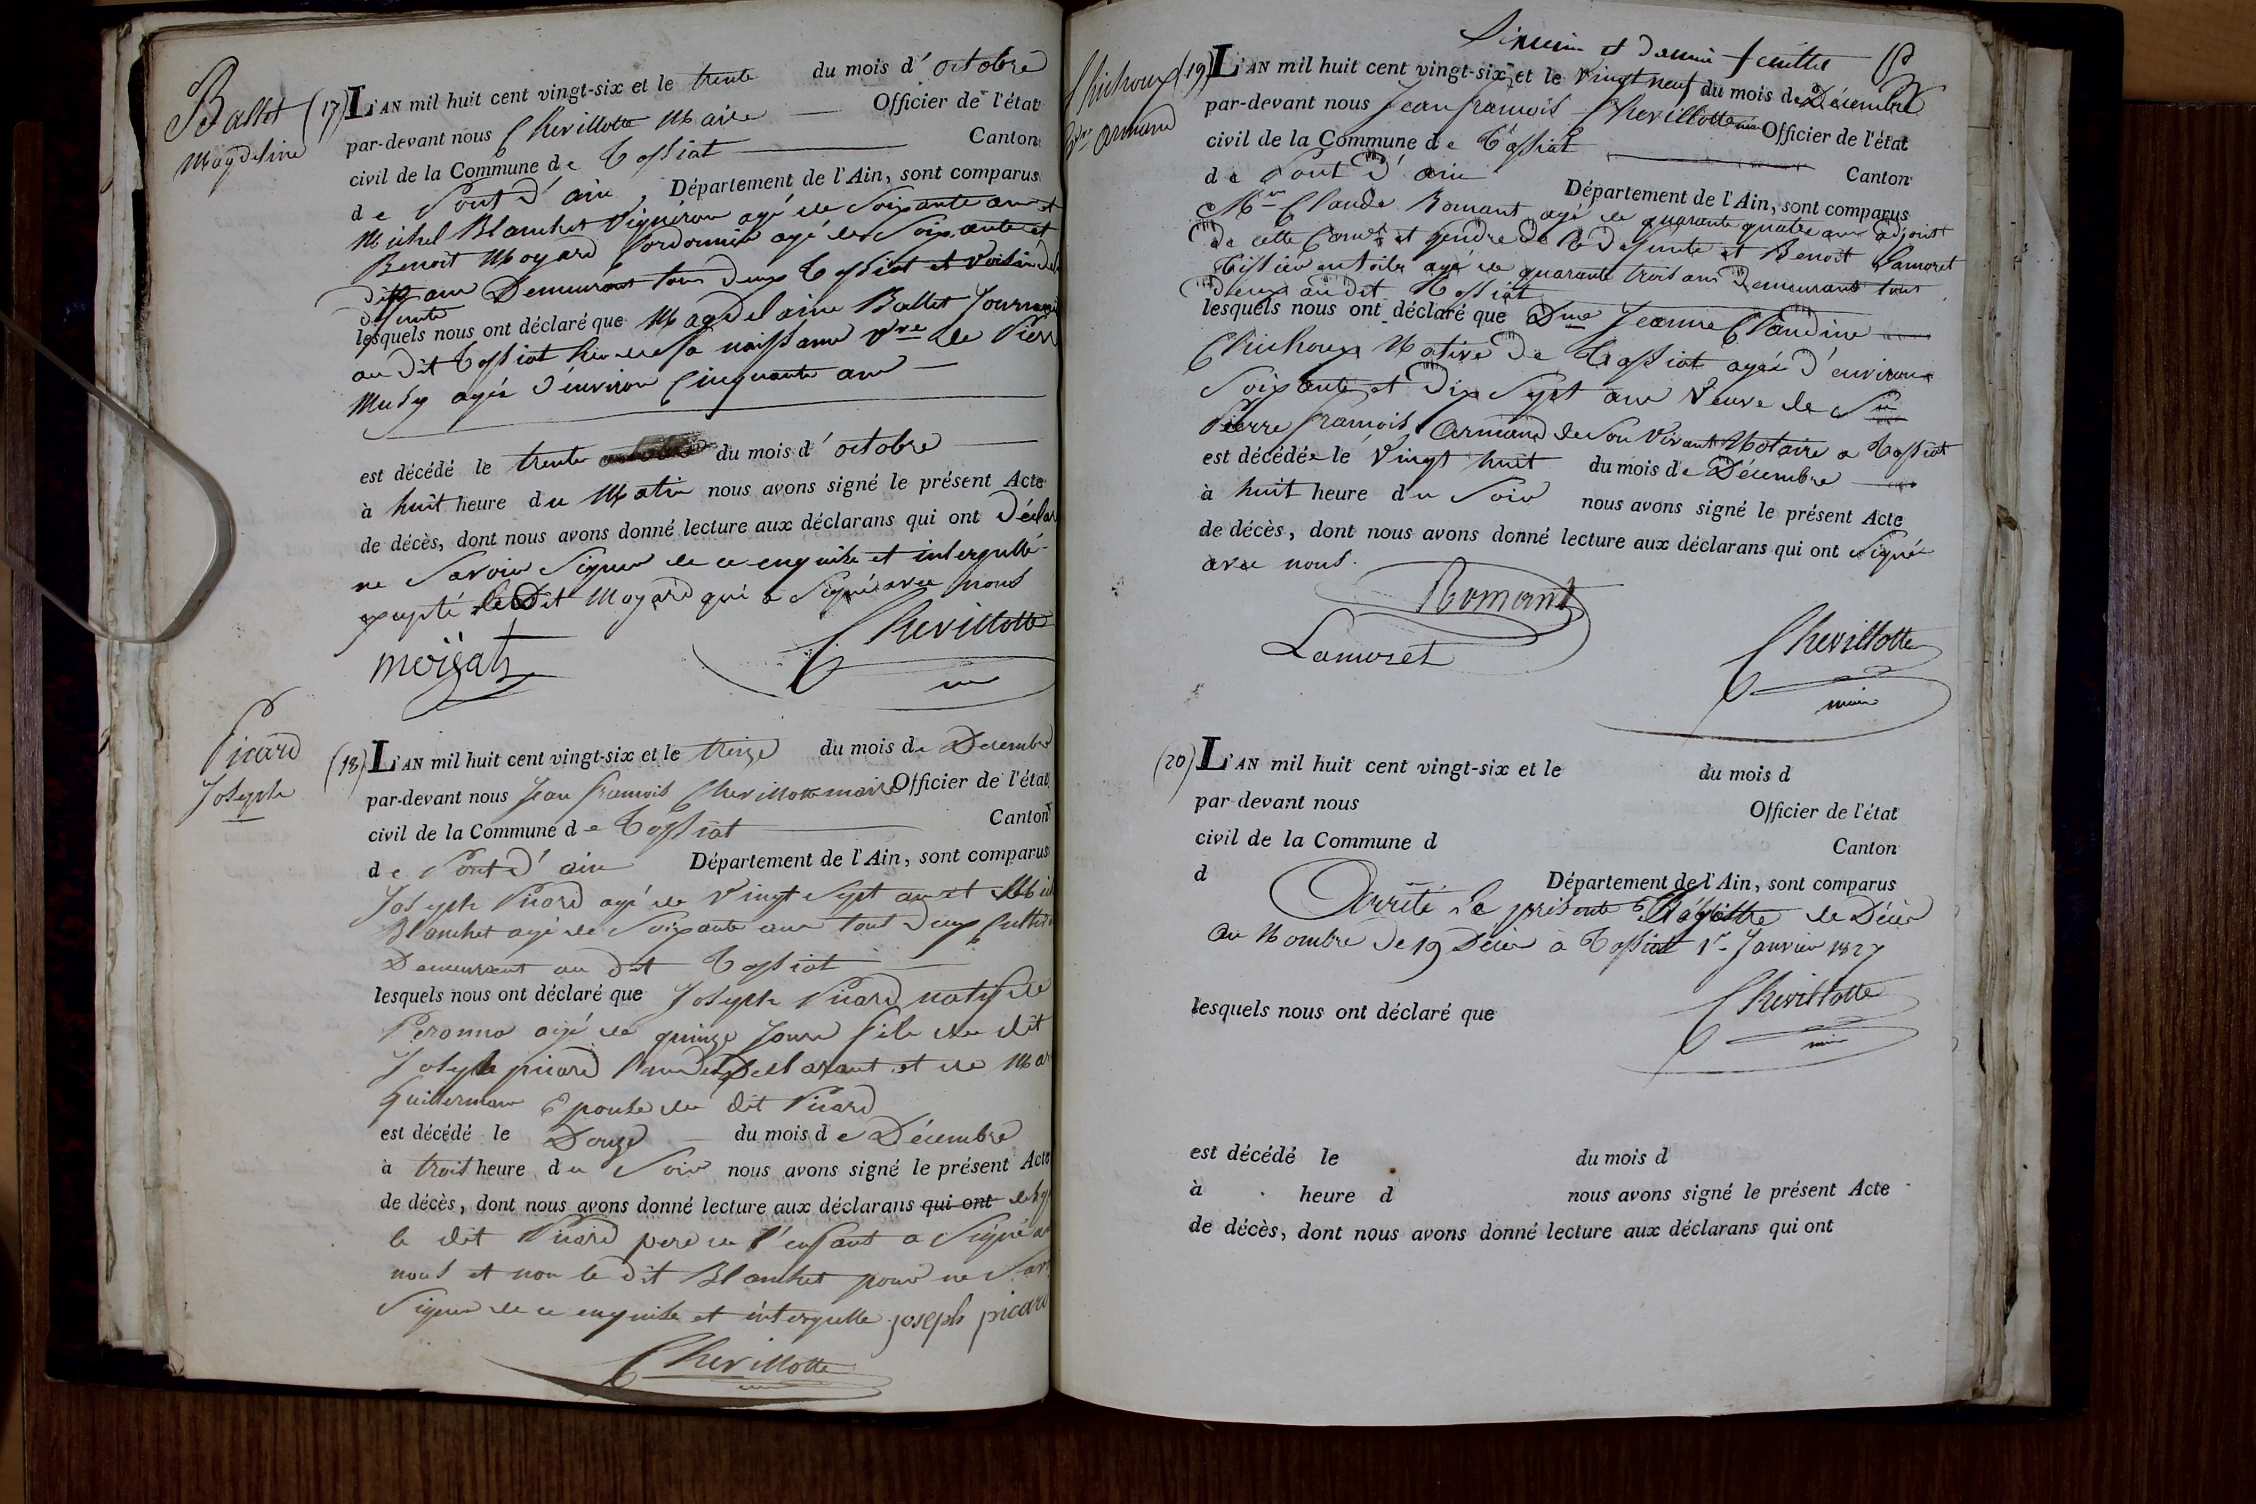 Ballet
Magdelaine
(17) L'AN mil huit cent vingt-six et le trente du mois d'octobre
par-devant nous Chevillotte Maire Officier de l'état
civil de la Commune de Tossiat Canton
de Pont d'ain Département de l'Ain, sont comparus
Michel Blanchet Vigneron agé de Soixante ans et
Benoit Moyard Cordonnier agé de Soixante et
dix ans Demeurant tous deux Tossiat et Voisin de la
défunte
lesquels nous ont déclaré que Magdelaine Ballet Journa
au dit Tossiat lieu de Sa naissance Vve de Pierr
Musy agée d'environ Cinquante ans
est décédé le trente du mois d'octobre
à huit heure du Matin nous avons signé le présent Acte
de décès, dont nous avons donné lecture aux déclarans qui ont Déclar
ne Savoir Signer de ce enquise et interpellé
excepté le Dit Moyard qui a Signé avec nous
Chevillotte
Picard
Joseph
(18) L'AN mil huit cent vingt-six et le treize du mois de Decembre
par-devant nous Jean francois Chevillotte maire Officier de l'état
civil de la Commune de Tossiat Canton
de Pont d'ain Département de l'Ain, sont comparus
Joseph Picard agé de Vingt Sept ans et Mic
Blanchet agé de Soixante ans tous deux Cultiv
Demeurant au dit Tossiat
lesquels nous ont déclaré que Joseph Picard natif de
Peronna agé de quinze Jours fils du dit
Joseph picard Declarant et de Mar
Guillerman Epouse du dit Picard
est décédé le Douze du mois de Décembre
à trois heure du Soir nous avons signé le présent Acte
de décès, dont nous avons donné lecture aux déclarans qui ont
le dit Picard pere de l'enfant a Signé av
nous et non le dit Blanchet pour ne Sav
Signer de ce enquise et interpelle joseph picard
Chevillotte
et demie feuille
Chichoux
Vve Armand
(19) L'AN mil huit cent vingt-six et le Vingt neuf du mois de Décembre
par-devant nous Jean francois Chevillotte maire Officier de l'état
civil de la Commune de Tossiat Canton
de Pont d'ain Département de l'Ain, sont comparus
Mr Claude Romant agé de quarante quatre ans adjoint
de cette Comne et gendre de la defunte et Benoit Lamoret
Tissier en toile agé de quarante trois ans Demeurant tous
Deux au dit Tossiat
lesquels nous ont déclaré que Dme Jeanne Claudine
Chichoux Native de Tossiat agée d'environ
Soixante et Dix Sept ans Veuve de Sr
Pierre francois Armand de Son Vivant Notaire a Tossiat
est décédée le Vingt huit du mois de Décembre
à huit heure du Soir nous avons signé le présent Acte
de décès, dont nous avons donné lecture aux déclarans qui ont Signé
avec nous.
Romant
Lamoret
Chevillotte
maire
(20) L'AN mil huit cent vingt-six et le du mois d
par-devant nous Officier de l'état
civil de la Commune d Canton
d Département de l'Ain, sont comparus
Arrêté le présente Régistre de Décès
au Nombre de 19 Décès à Tossiat 1r Janvier 1827
Chevillotte
maire
lesquels nous ont déclaré que
est décédé le du mois d
à heure d nous avons signé le présent Acte
de décès, dont nous avons donné lecture aux déclarans qui ont